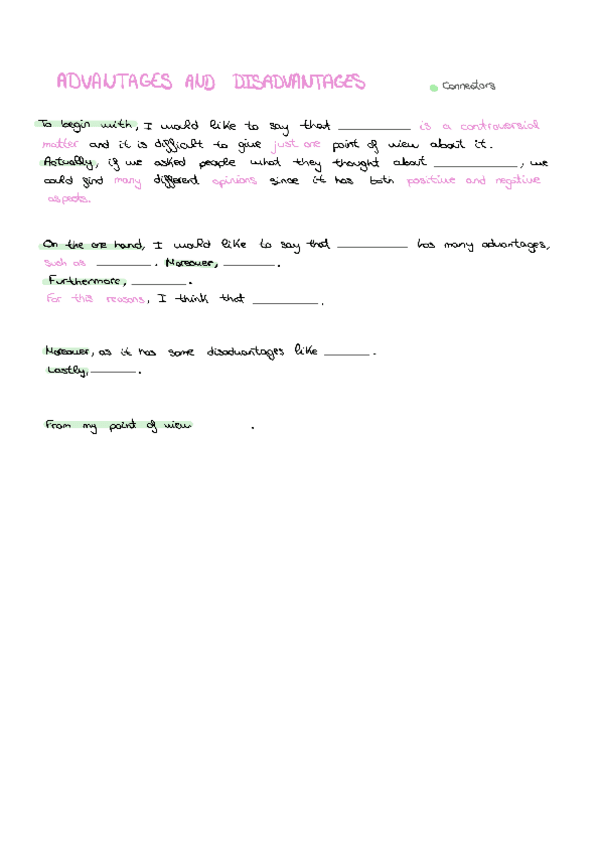 ADVANTAGES AND DISADVANTAGES
Connectors
To begin with, I would like to say that __________ is a controversial
matter and it is difficult to give just one point of view about it.
Actually, if we asked people what they thought about __________, we
could find many different opinions since it has both positive and negitive
aspects.
On the one hand, I would like to say that __________ has many advantages,
such as ________. Moreover, ________.
Furthermore, ________.
For this reasons, I think that __________.
Moreover, as it has some disadvantages like _______.
Lastly, _______.
From my point of view .